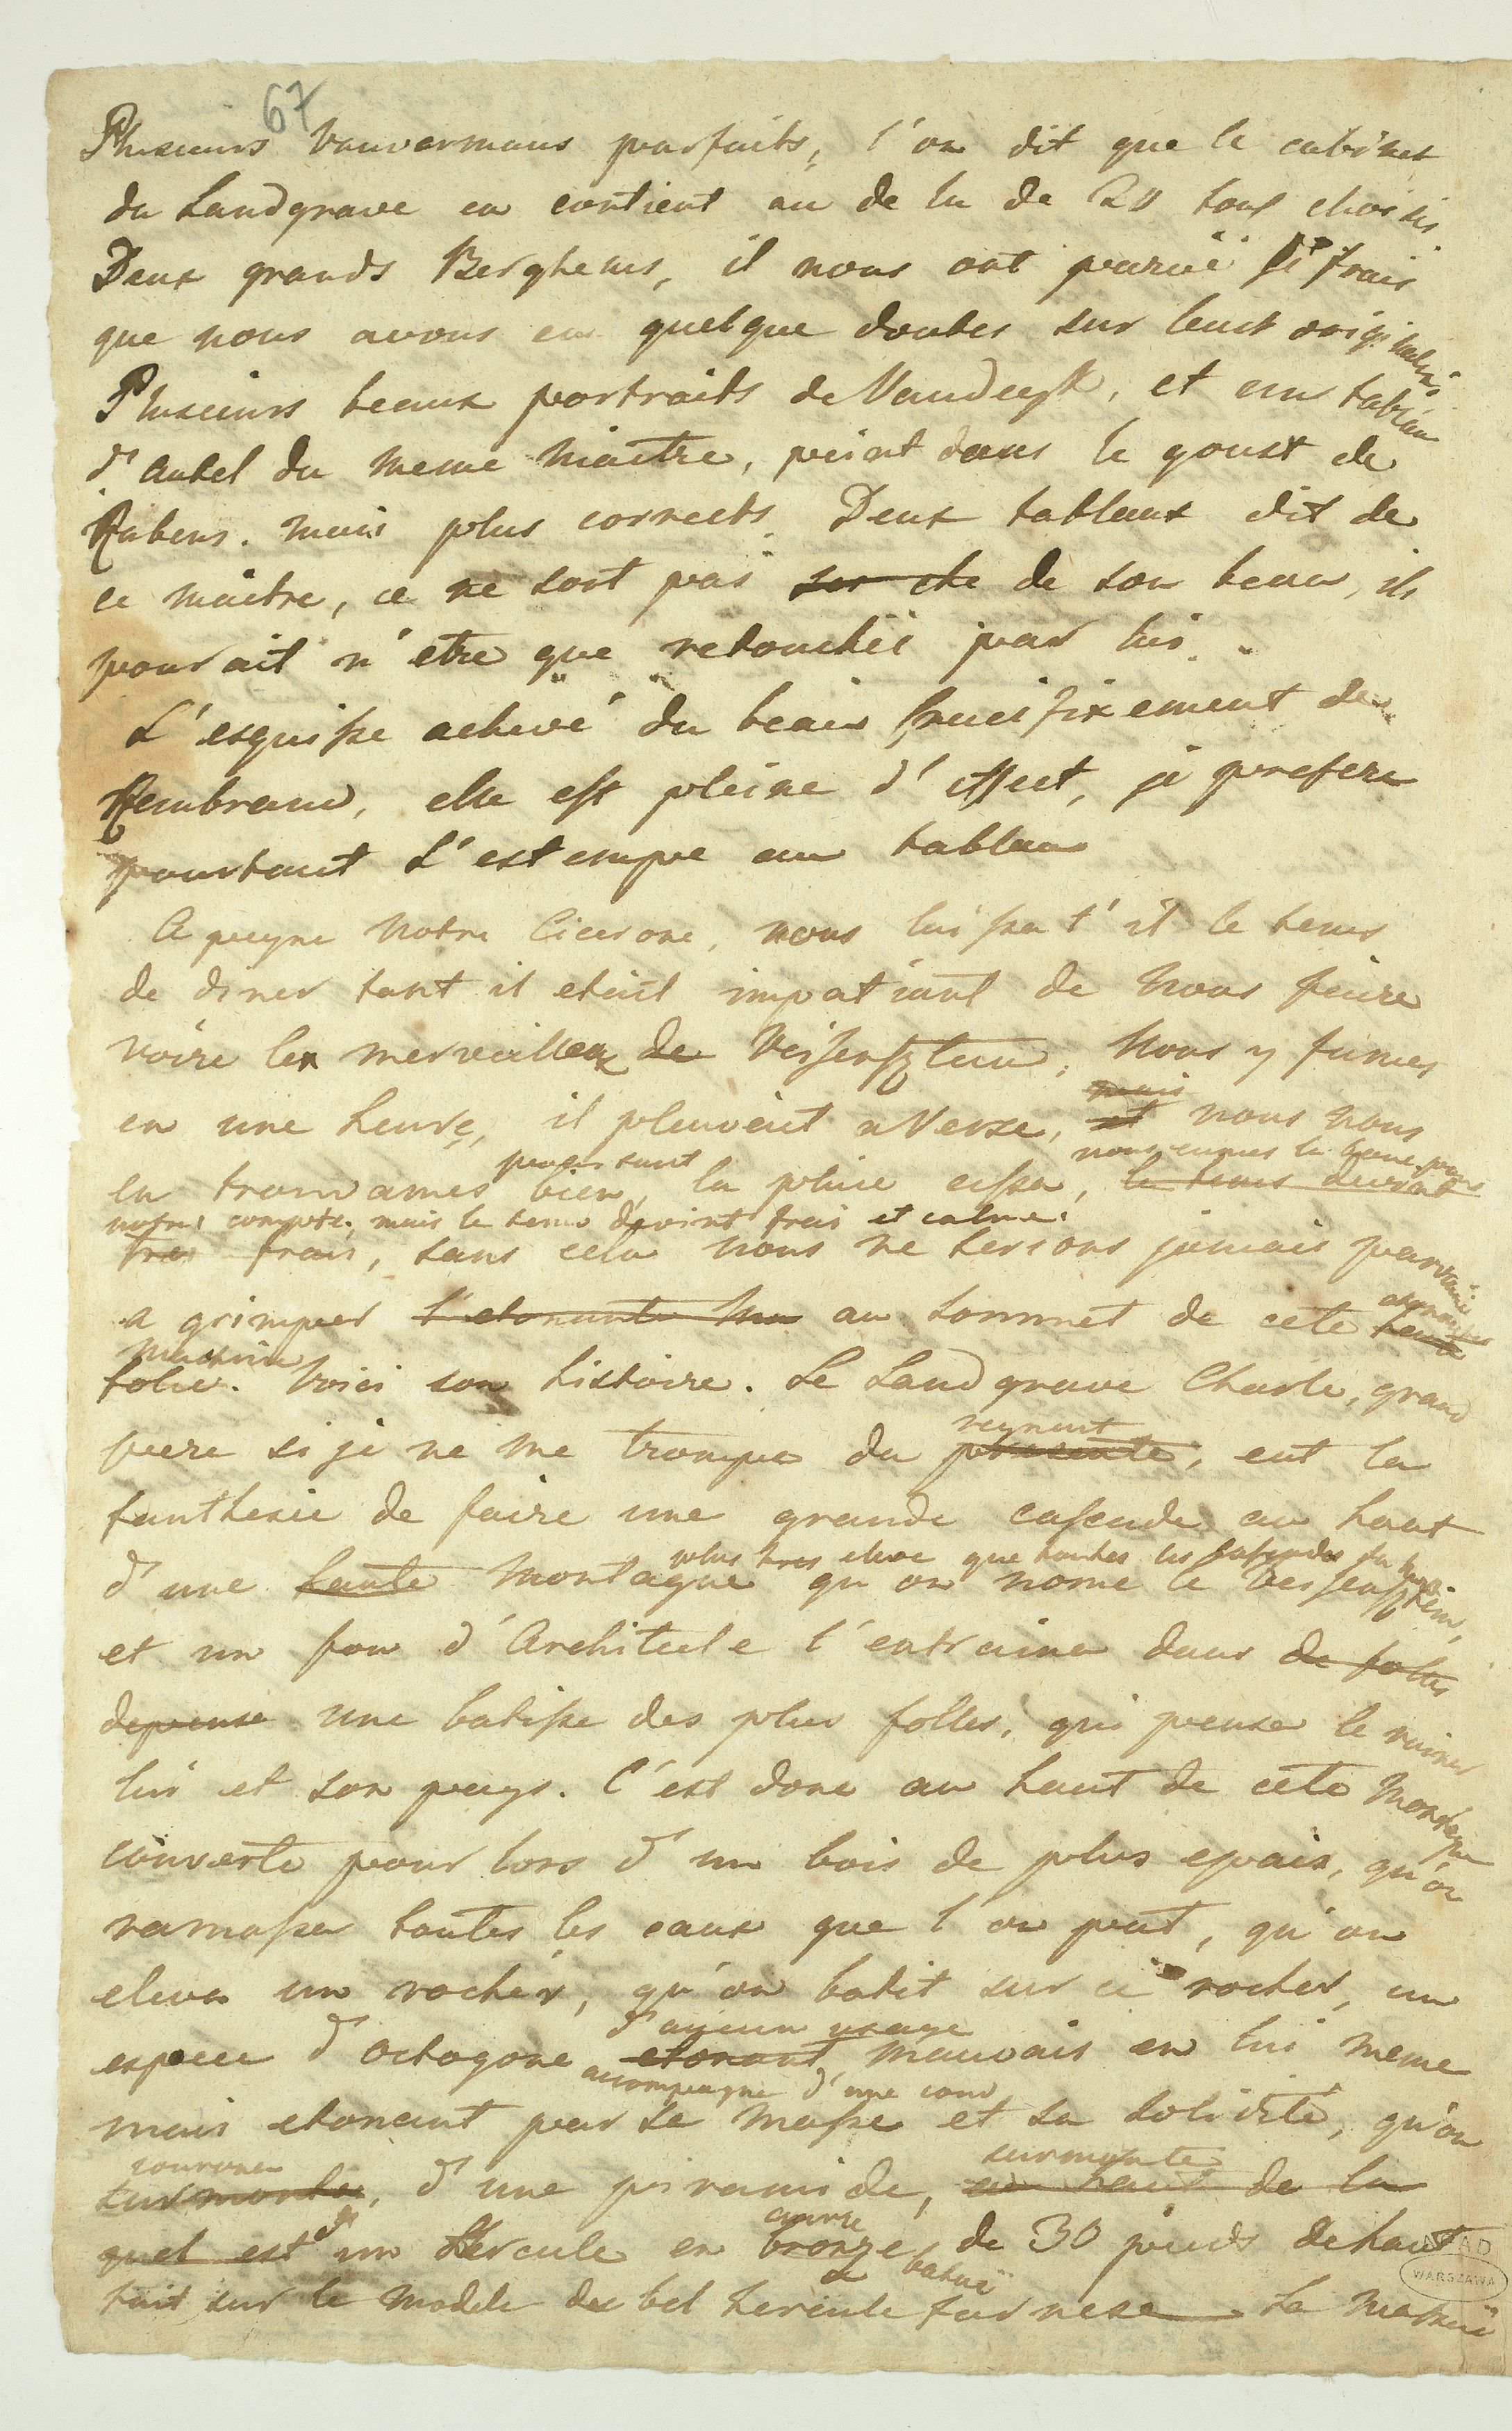 67
Plusieurs Vauvermans parfaits, l'on dit que le cabinet
du Landgrave en contient au de la de 20 tous choisis
Deux grands Berghems, il nous ont paruë si frais
que nous avons eu quelque doutes sur leurs
Plusieurs beaux portraits de Vandeyk, et un tableau
d'Autel du meme maitre, peint dans le goust de
Rubens. mais plus corrects. Deux tableaux dit de
ce maitre, ce ne sont pas de son beau, ils
pourait n'etre que retouchéé par lui.
L'esquisse achevé du beau Crucifixement de
Rembrand, elle est pleine d'effect, je prefere
pourtant L'estempe au tableau
A peyne notre Cicerone, nous laissa t'il le tems
de diner tant il etait impatiant de nous faire
voire les merveilles de Veissenstein, Nous y fumes
mais
en une heure, il pleuvait a Verse, et nous nous
pourtant nous eumes la boue pour
en trouvames bien, la pluie cessa, le tems devint
notre compte, mais le tems devint frais et calme.
tres frais, sans cela nous ne serions jamais parvenu
etonante
a grimper l'etonante au sommet de cete
machine
folie. Voici son histoire. Le Landgrave Charle, grand
regnant
pere si je ne me trompe du presente, eut la
fanthesie de faire une grande cascade au haut
plus tres eleve que toutes les cascades du
d'une haute montagne qu'on nome le Veissenstein,
et un fou d'Architecte l'entraina dans de folles
depense une batisse des plus folles, qui pensa le ruiner
lui et son pays. C'est donc au haut de cete montagne
couverte pour lors d'un bois de plus epais, qu'on
ramassa toutes les eaux que l'on peut, qu'on
eleva un rocher, qu'on batit sur ce rocher, un
d'aucun usage
espece d'octogone etonant, mauvais en lui meme
accompagné d'une cour
mais etonant par sa masse et sa solidité, qu'on
couronna surmonte
surmonta, d'une piramide, au haut de la
de cuivre
quel est un Hercule en bronze de 30 pieds de haut
batuë
fait sur le modele du bel hercule farnese. La massuë
AGAD
WARSZAWA